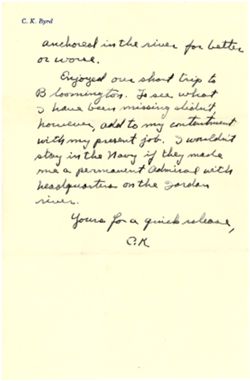 C. K. Byrd
anchored in the river for better
or worse.
Enjoyed our short trip to
Bloomington. To see what
I have been missing didn't,
however, add to my contentment
with my present job. I wouldn't
stay in the Navy if they made
me a permanent Admiral with
headquarters on the Jordan
river.
Yours for a quick release,
C.K